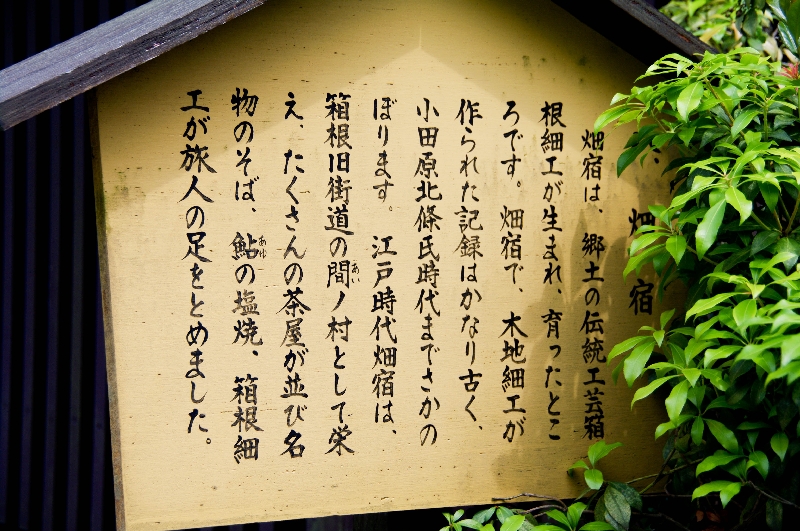 畑宿
畑宿は、郷土の伝統工芸箱
根細工が生まれ、育ったとこ
ろです。畑宿で、木地細工が
作られた記録はかなり古く、
小田原北條氏時代までさかの
ぼります。江戸時代畑宿は、
箱根旧街道の間ノ村として栄
え、たくさんの茶屋が並び名
物のそば、鮎の塩焼、箱根細
工が旅人の足をとめました。